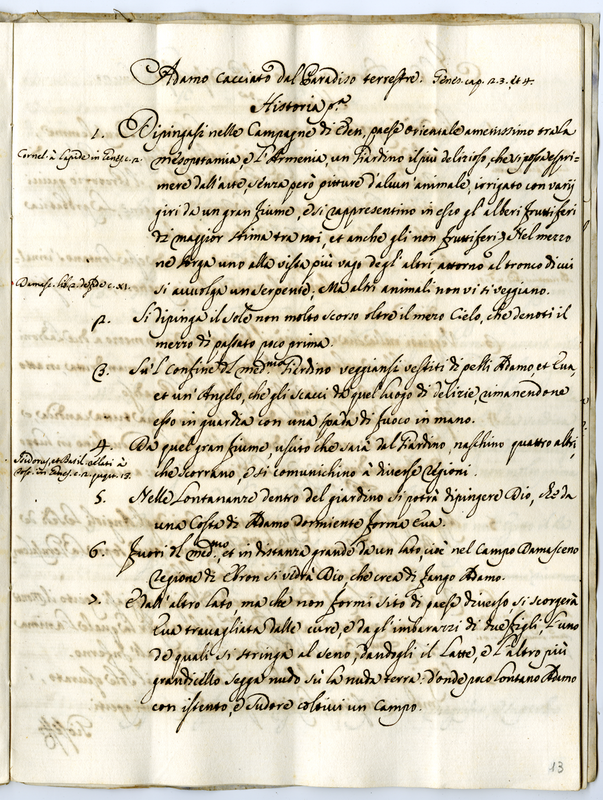 Adamo cacciato dal Paradiso terrestre. Genes. cap. 2. 3. et 4.
Historia p.ª
1. Dipingasi nelle Campagne di Eden, paese Orientale amenissimo tra la
Cornel. à Lapide in Genes. c. 2.
mesopotamia, e l'Armenia, un Giardino il più delizioso, che si possa espri-
mere dall'arte, senza però pitture d'alcun animale, irrigato con varij
giri da un gran fiume, e si rappresentino in esso gl'alberi fruttiferi
di maggior stima tra noi, et anche gli non fruttiferi. Nel mezzo
ne sorga uno alla vista più vago degl'altri, attorno al tronco di cui
Damasc. lib. 2. de fide c. XI.
si avvolga un serpente. Ma altri animali non vi si veggiano.
2. Si dipinga il sole non molto scorso oltre il mezo Cielo, che denoti il
mezzo dì passato poco prima.
3. Su'l confine del med.mo Giardino veggiansi vestiti di pelli Adamo, et Eva,
et un'Angelo, che gli scacci da quel luogo di delizie, rimanendone
esso in guardia con una spada di fuoco in mano.
4. Da quel gran fiume, uscito che sarà dal Giardino naschino quattro altri,
Isidorus, et Basil. relati à
che scorrano, e si comunichino à diverse regioni.
in Genes. c. 2. 15.
5. Nelle Lontananze dentro del giardino si potrà dipingere Dio, che da
una Costa di Adamo dormiente forma Eva.
6. Fuori del med.mo, et in distanza grande da un lato, cioè nel Campo Damasceno
regione di Ebron si vedrà Dio, che crea di fango Adamo.
7. E dall'altro lato, ma che non formi sito di paese diverso si scorgerà
Eva travagliata dalle cure, e da gl'imbarazzi di due figli, l'uno
de quali si stringa al seno, dandogli il Latte, e l'altro più
grandicello segga nudo su la nuda terra: d'onde poco lontano Adamo
con istento, e sudore coltivi un Campo.
13